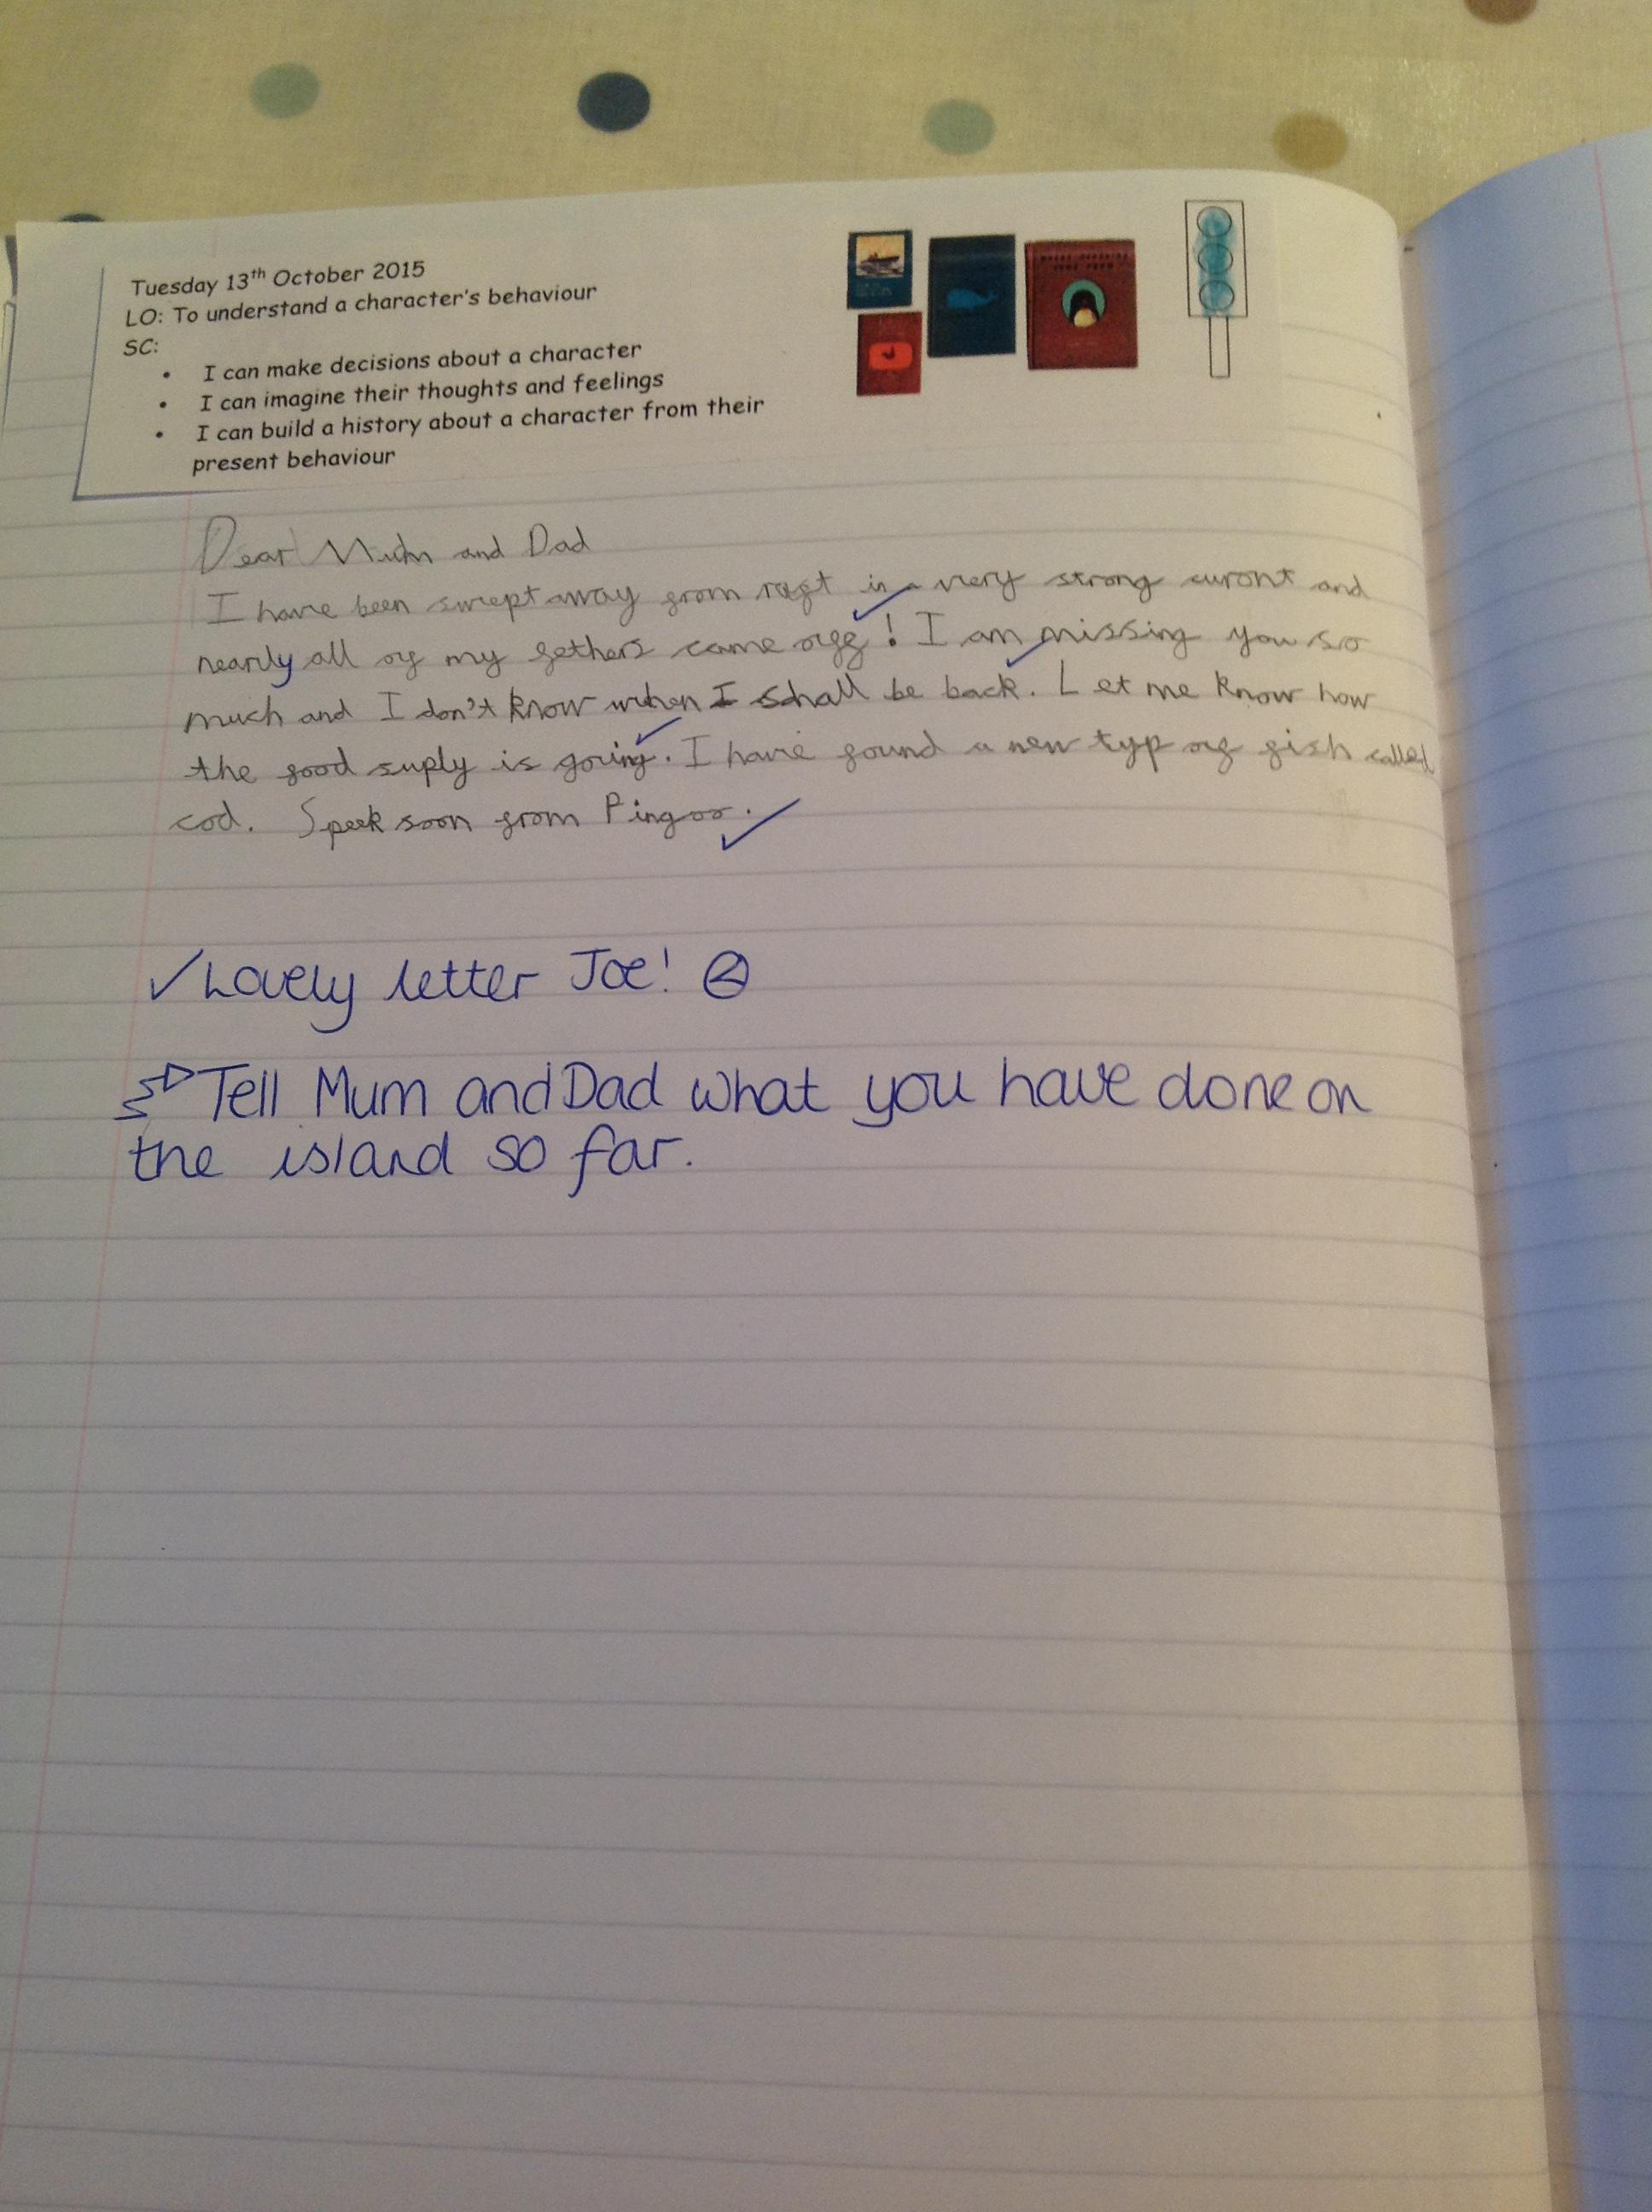 Tuesday 13th October 2015
LO: To understand a character's behaviour
SC:
• I can make decisions about a character
• I can imagine their thoughts and feelings
• I can build a history about a character from their
present behaviour
Dear Mum and Dad
I have been swept away from raft in a very strong curont and
nearly all of my fethers came off! I am missing you so
much and I don't know when I shall be back. Let me know how
the food suply is going. I have found a new typ of fish called
cod. Speek soon from Pingoo.
✓ Lovely letter Joe! ②
Tell Mum and Dad what you have done on
the island so far.